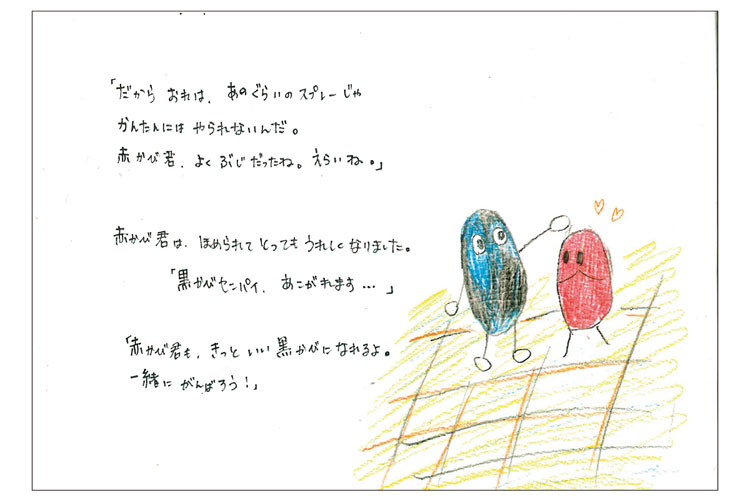 「だから おれは、あのぐらいのスプレーじゃ
かんたんには やられないんだ。
赤かび君、よく ぶじだったね。えらいね。」
赤かび君は、ほめられて とっても うれしくなりました。
「黒かびセンパイ、あこがれます…」
「赤かび君も、きっと いい 黒かびに なれるよ。
一緒に がんばろう！」